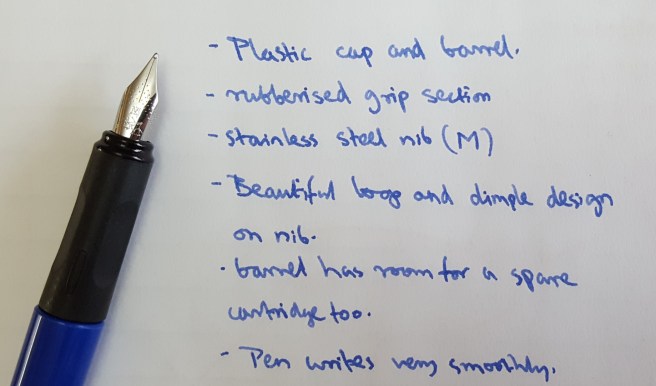 - Plastic cap and barrel.
- rubberised grip section
- stainless steel nib (M)
- Beautiful loop and dimple design
on nib.
- barrel has room for a spare
cartridge too.
- Pen writes very smoothly.